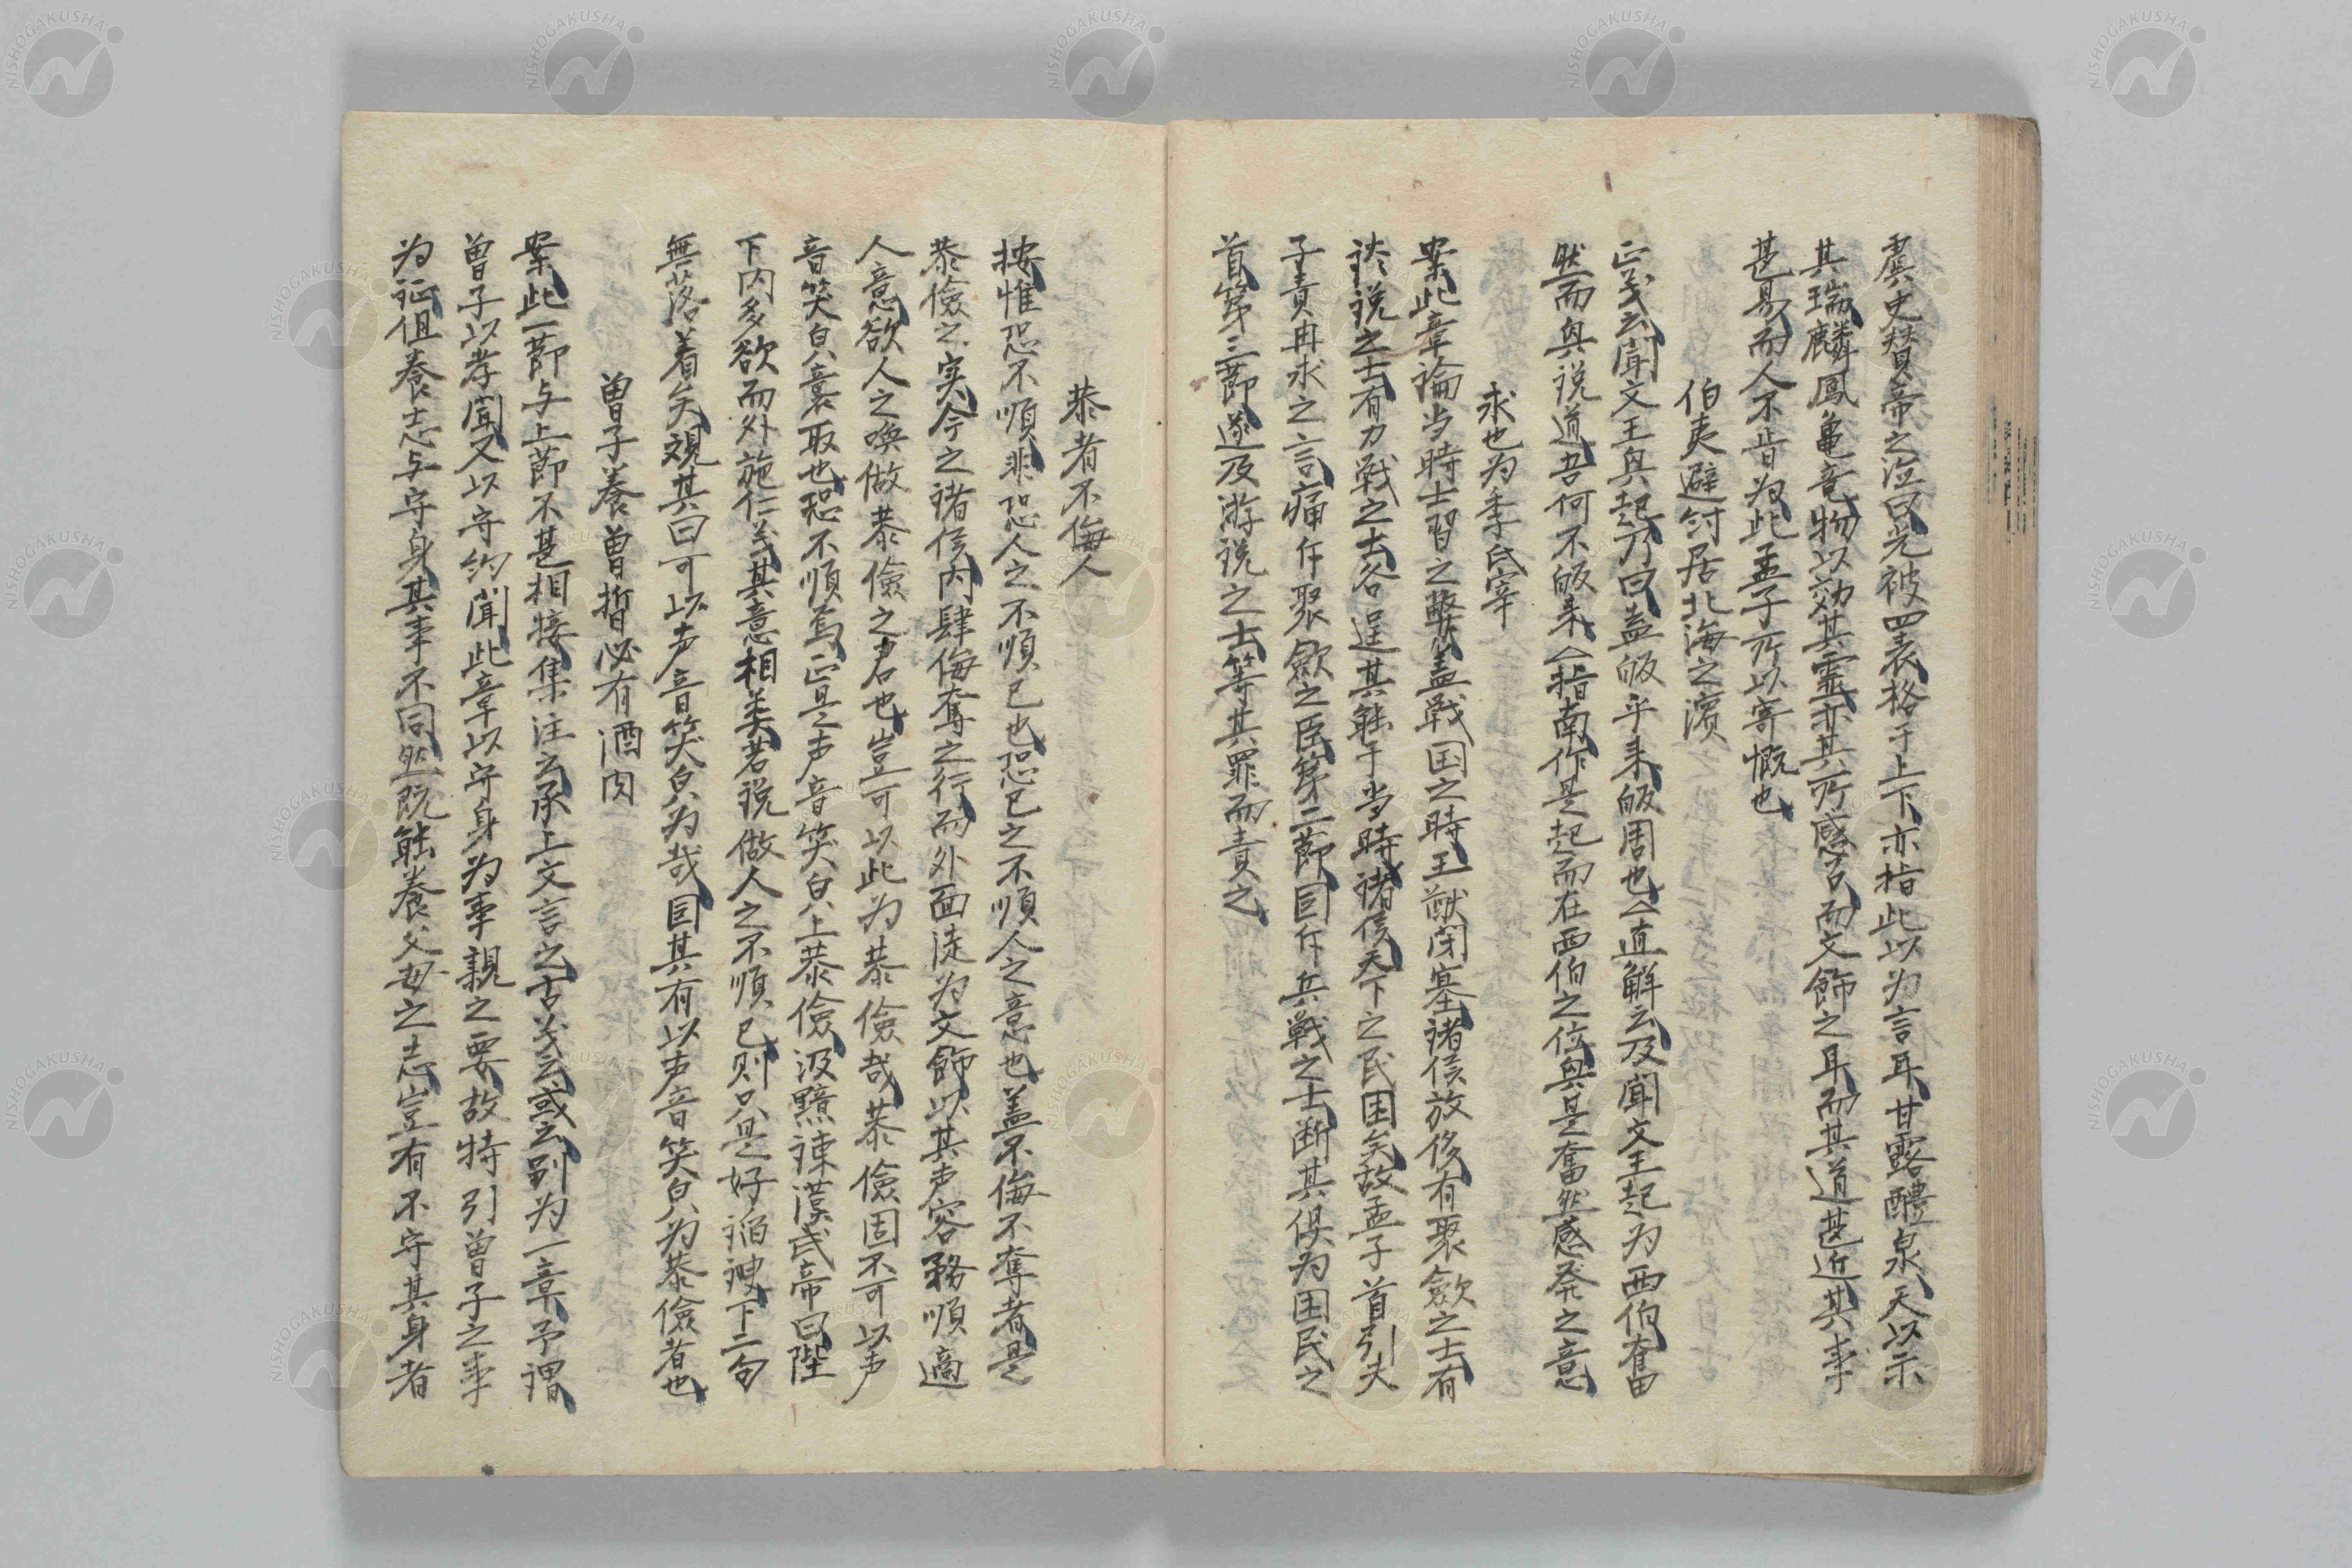 虞史賛帝之泣曰光被四表格于上下亦指此以为言耳甘露醴泉天以示
其瑞麟鳳亀竜物以効其霊亦其所感召而文飾之耳而其道甚近其事
甚易而人不肯为此孟子所以寄慨也
伯夷避紂居北海之濱
正义云聞文王與起乃曰盍皈乎来皈周也△直解云及聞文王起为西伯奮
然而與説道吾何不皈来△指南作是起而在西伯之位與是奮然感発之意
求也为季氏宰
案此章論当時士習之弊公盖戦国之時王猷閉塞諸侯放侈有聚斂之士有
談説之士有力戦之士各逞其能于当時諸侯天下之民困矣故孟子首引夫
子責冉求之言痛斥聚斂之臣第二節因斥兵戦之士断其倶为困民之
首第三節遂及游説之士等其罪而責之
恭者不侮人
按惟恐不順非恐人之不順己也恐己之不順人之意也盖不侮不奪者是
恭儉之実今之諸侯内肆侮奪之行而外面徒为文飾以其声容務順適
人意欲人之喚做恭儉之君也豈可以此为恭儉哉恭儉固不可以声
音笑皃襲取也恐不順焉正是之声音笑皃上恭儉汲黯諌漢武帝曰陛
下内多欲而外施仁义其意相类若説做人之不順己则只是好謟諛下二句
無落着矣覌其曰可以声音笑皃为哉因其有以声音笑皃为恭儉者也
曽子養曽晳必有酒肉
案此一節与上節不甚相接集注云承上文言之古义云或云別为一章予謂
曽子以孝聞又以守約聞此章以守身为事親之要故特引曽子之事
为証但養志与守身其事不同然既能養父母之志豈有不守其身者